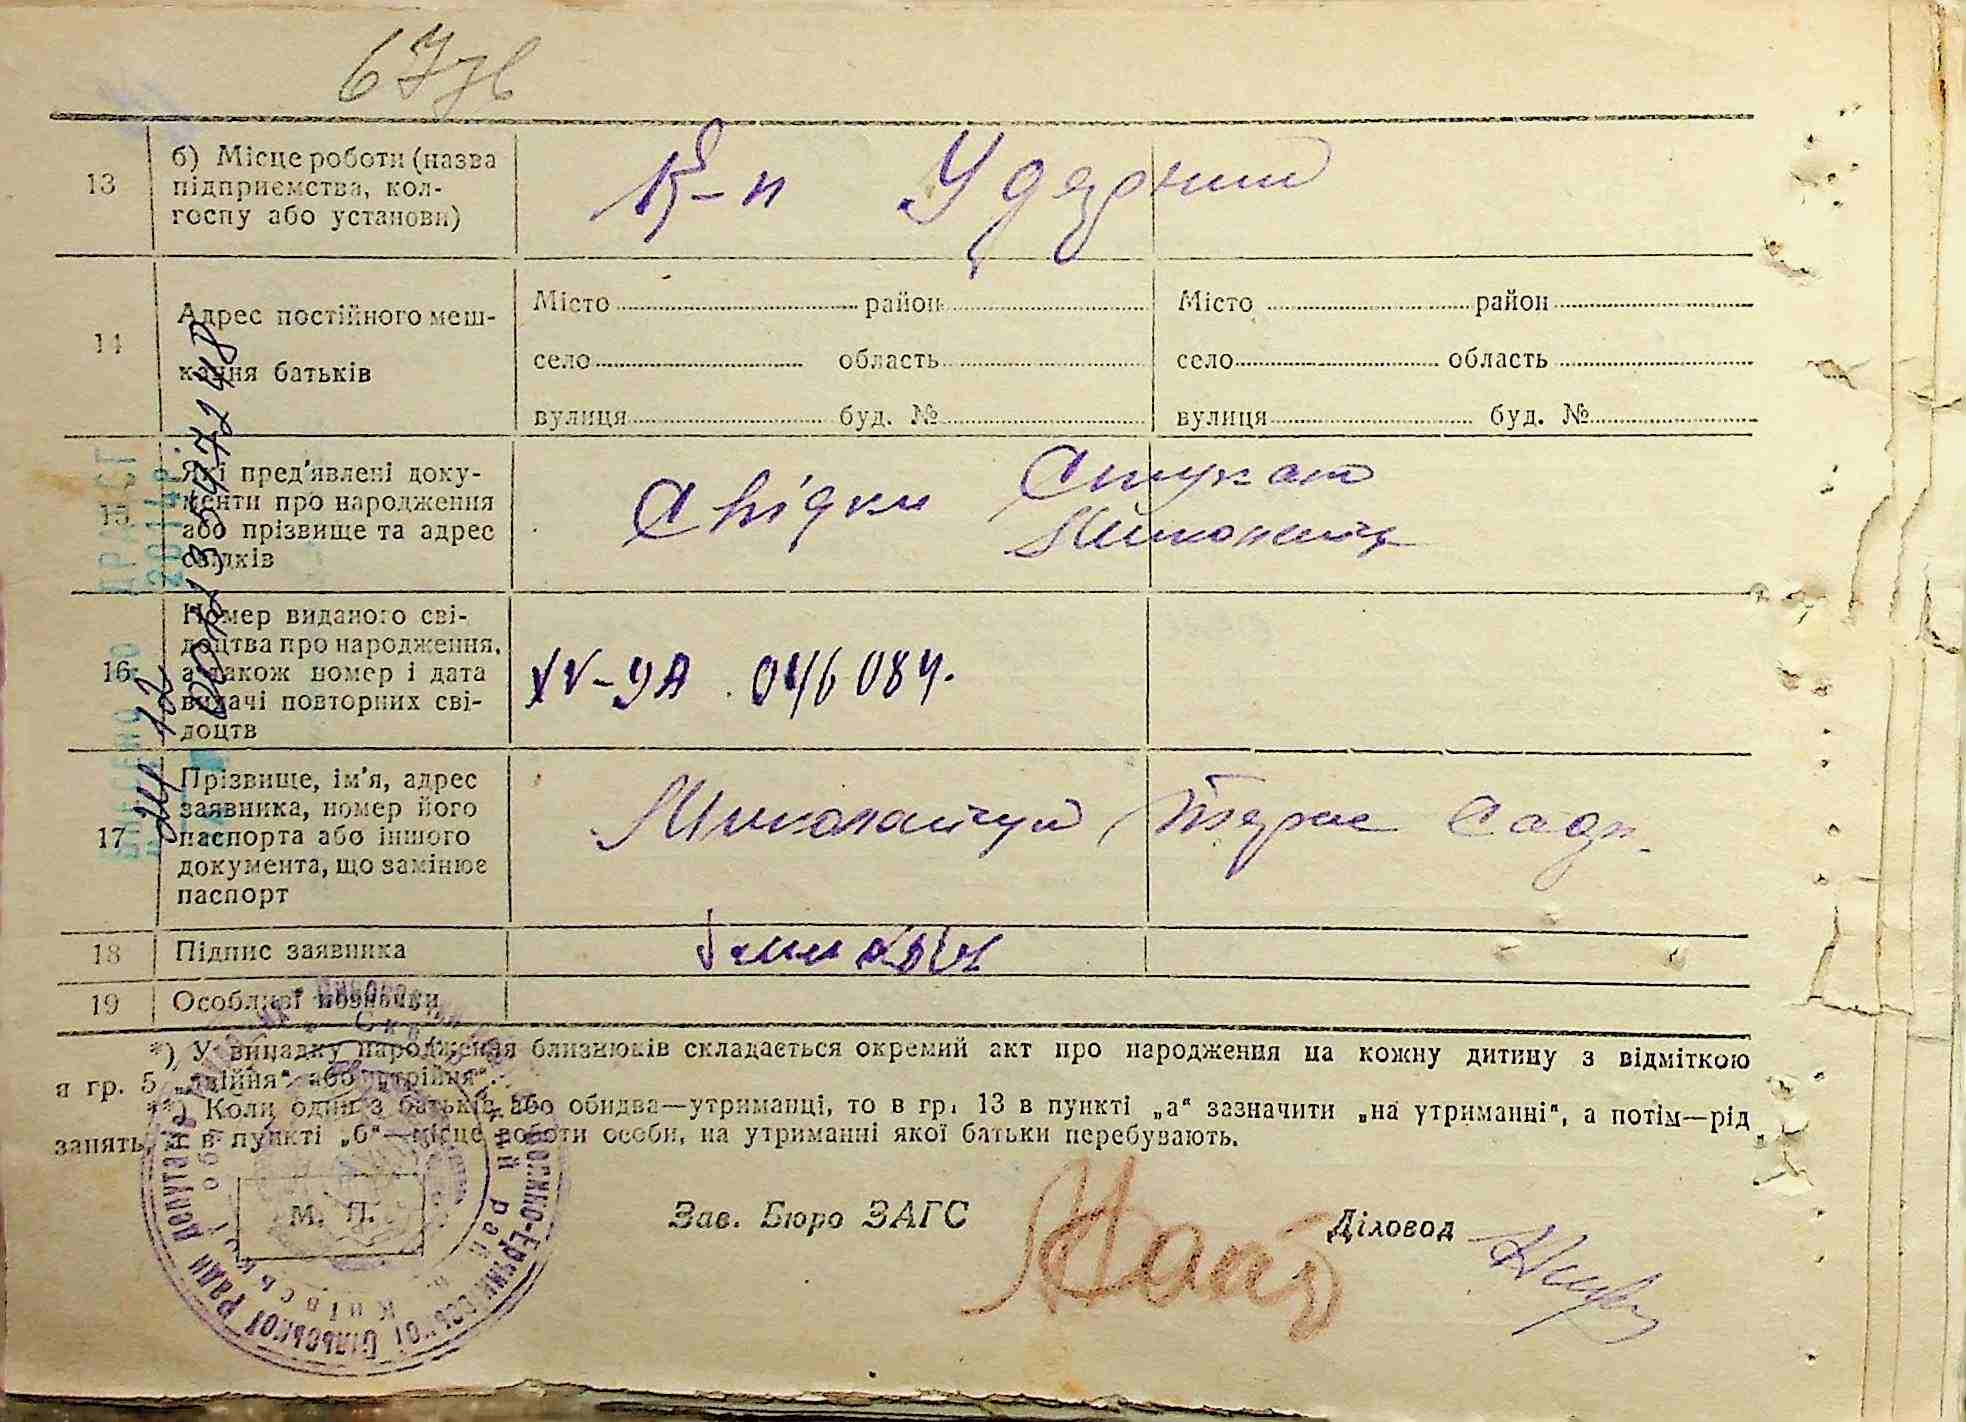 67зв
13
б) Місце роботи (назва
підприємства, кол-
госпу або установи)
К-п Ударний
14
Адрес постійного меш-
кання батьків
Місто район
село область
вулиця буд. №
Місто район
село область
вулиця буд. №
15
Які пред'явлені доку-
менти про народження
або прізвище та адрес
свідків
Свідки
16
Номер виданого сві-
доцтва про народження,
а також номер і дата
видачі повторних сві-
доцтв
046084.
17
Прізвище, ім'я, адрес
заявника, номер його
паспорта або іншого
документа, що замінює
паспорт
Тарас
18
Підпис заявника
19
Особливі позначки
ДРАЦСГ
2014р.
*) У випадку народження близнюків складається окремий акт про народження на кожну дитину з відміткою
в гр. 5 „двійня“ або „трійня“.
**) Коли один з батьків або обидва—утриманці, то в гр. 13 в пункті „а“ зазначити „на утриманні“, а потім—рід
занять, а в пункті „б“—місце роботи особи, на утриманні якої батьки перебувають.
М. П.
Зав. Бюро ЗАГС
Діловод
сільської Ради депутатів
Київської обл.